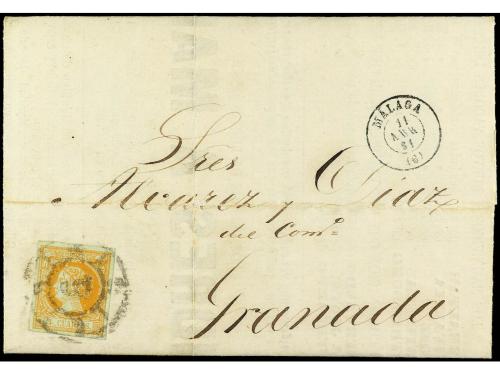 MALAGA
11
ABR
61
(6)
Sres
Alvarez y Diaz
del Comº
Granada
CUARTOS